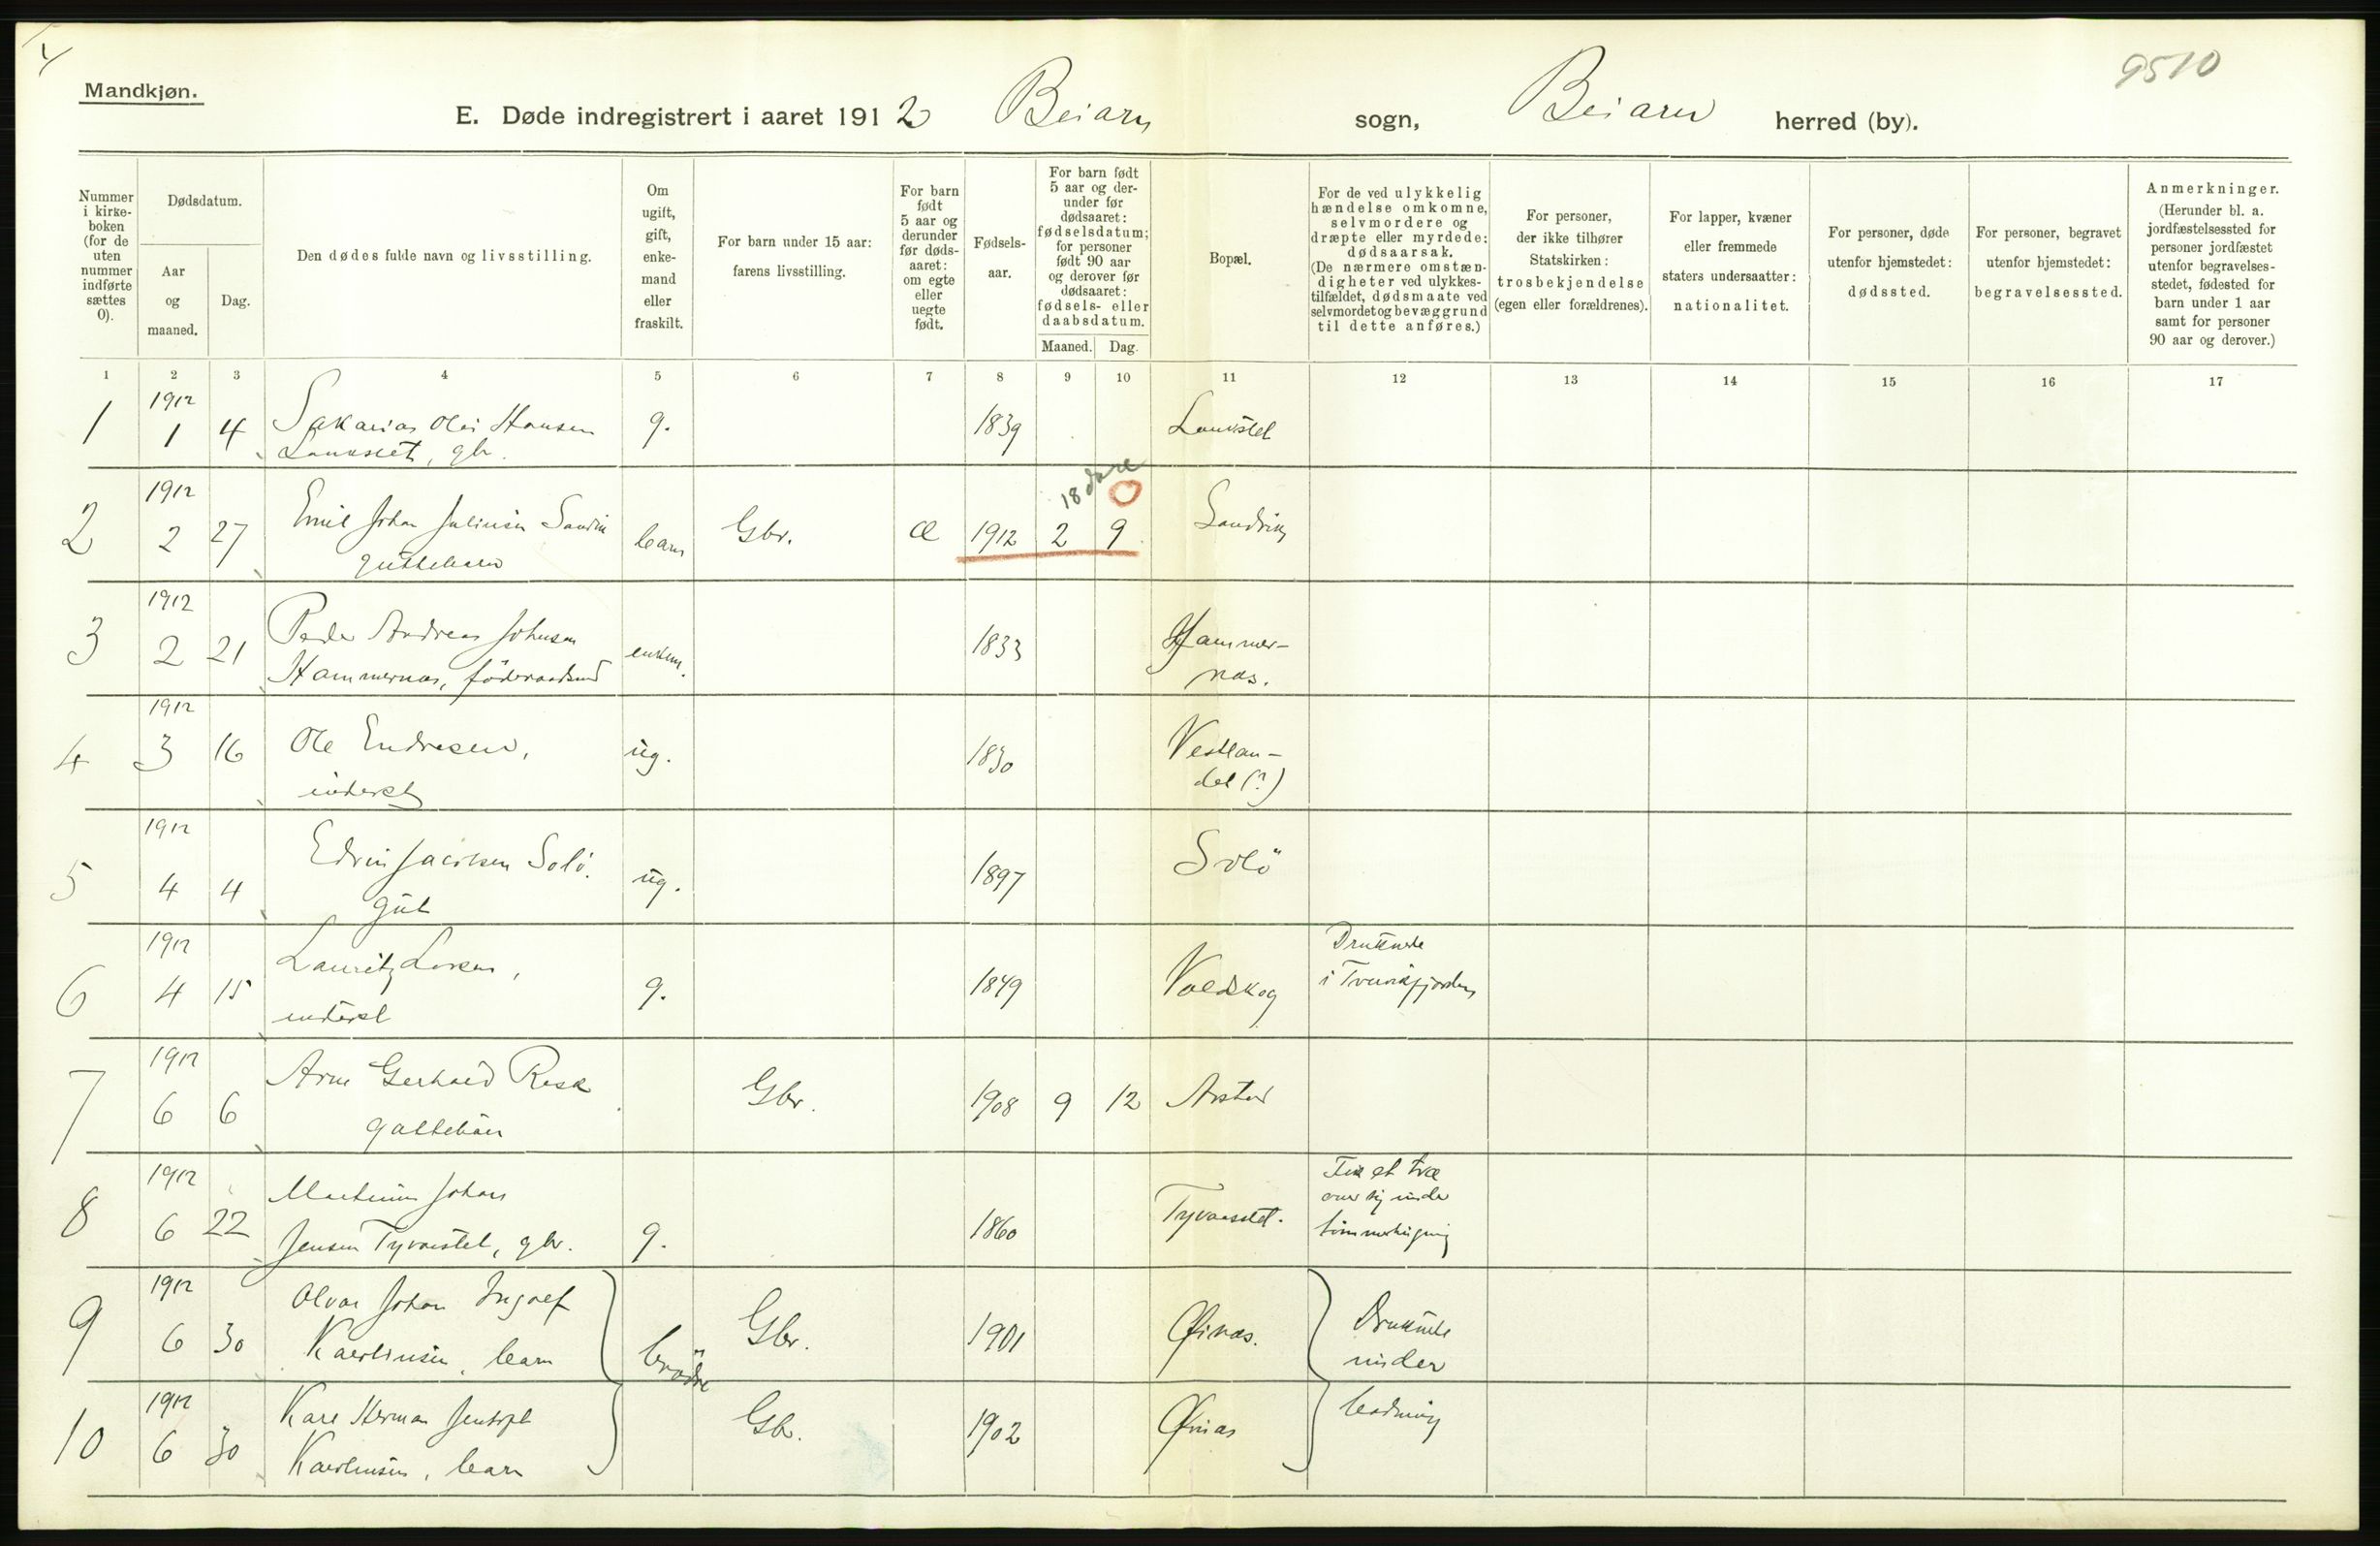 Mandkjøn.
9510
E. Døde indregistrert i aaret 1912 Beiarn sogn, Beiarn herred (by).
Nummer i kirke-boken (for de uten nummer indførte sættes 0).
Dødsdatum.
Aar og maaned.
Dag.
Den dødes fulde navn og livsstilling.
Om ugift, gift, enke-mand eller fraskilt.
For barn under 15 aar: farens livsstilling.
For barn født 5 aar og derunder før døds-aaret: om egte eller uegte født.
Fødsels-aar.
For barn født 5 aar og der-under før dødsaaret: fødselsdatum; for personer født 90 aar og derover før dødsaaret: fødsels- eller daabsdatum.
Maaned. Dag.
Bopæl.
For de ved ulykkelig hændelse omkomne, selvmordere og dræpte eller myrdede: dødsaarsak. (De nærmere omstæn-digheter ved ulykkes-tilfældet, dødsmaate ved selvmordet og bevæggrund til dette anføres.)
For personer, der ikke tilhører Statskirken: trosbekjendelse (egen eller forældrenes).
For lapper, kvæner eller fremmede staters undersaatter: nationalitet.
For personer, døde utenfor hjemstedet: dødssted.
For personer, begravet utenfor hjemstedet: begravelsessted.
Anmerkninger. (Herunder bl. a. jordfæstelsessted for personer jordfæstet utenfor begravelses-stedet, fødested for barn under 1 aar samt for personer 90 aar og derover.)
1 2 3 4 5 6 7 8 9 10 11 12 13 14 15 16 17
1 1912 1 4 Sakarias Olai Hansen g. 1839
gbr.
18 dage
2 1912 2 27 Emil Johan Julinsen Sandvik barn Gbr. Æ 1912 2 9 Sandvik
guttebarn
3 1912 2 21 Peder Andreas Johnsen enkem. 1833 Hammer-
Hammernæs, föderaadsmd næs.
4 1912 3 16 Ole Endresen, ug. 1830 Vestlan-
inderst det (?)
5 1912 4 4 Edvin Jacobsen Solö. ug. 1897 Solö
gut
6 1912 4 15 Lauritz Larsen, g. 1849 Voldskog Druknede
inderst i
7 1912 6 6 Arne Gerhard Gbr. 1908 9 12 Arstad
guttebarn
8 1912 6 22 Martinus Johan 1860 Fik et træ
Jensen gbr. g. over sig under
tömmerhugning
9 1912 6 30 Johan Ingolf Gbr. 1901 Druknede
barn brödre under
10 1912 6 30 Kare Herman Gbr. 1902 badning
barn